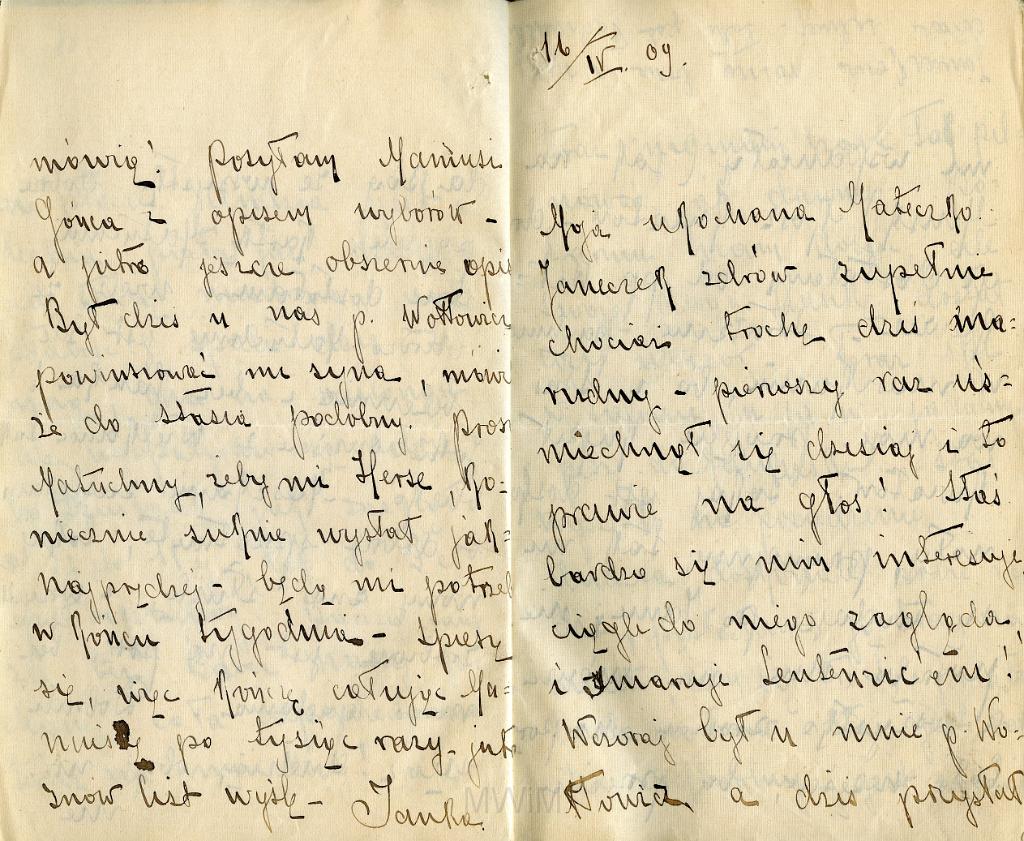 16/IV. 09.
Moja ukochana Mateczko!
Janeczek zdrów zupełnie
chociaż trochę dziś ma=
rudny - pierwszy raz uś-
miechnął się dzisiaj i to
prawie na głos! Staś
bardzo się nim interesuje
ciągle do niego zagląda
i
Wczoraj był u mnie p. Wo-
łłowicz a dziś przysłał
mówią! Posyłam Mamusi
Gońca z opisem wyborów -
a jutro jeszcze obszernie opis
Był dziś u nas p. Wołłowicz
powinszować mi syna, mówi
że do Stasia podobny. Pros
Matuchny, żeby mi Herse, ko-
niecznie suknie wysłał jak=
najprędzej - będą mi potrzeb
w końcu tygodnia - spieszę
się, więc kończę całując Ma=
musię po tysiąc razy - jutr
znów list wyślę - Janka.
MWiM